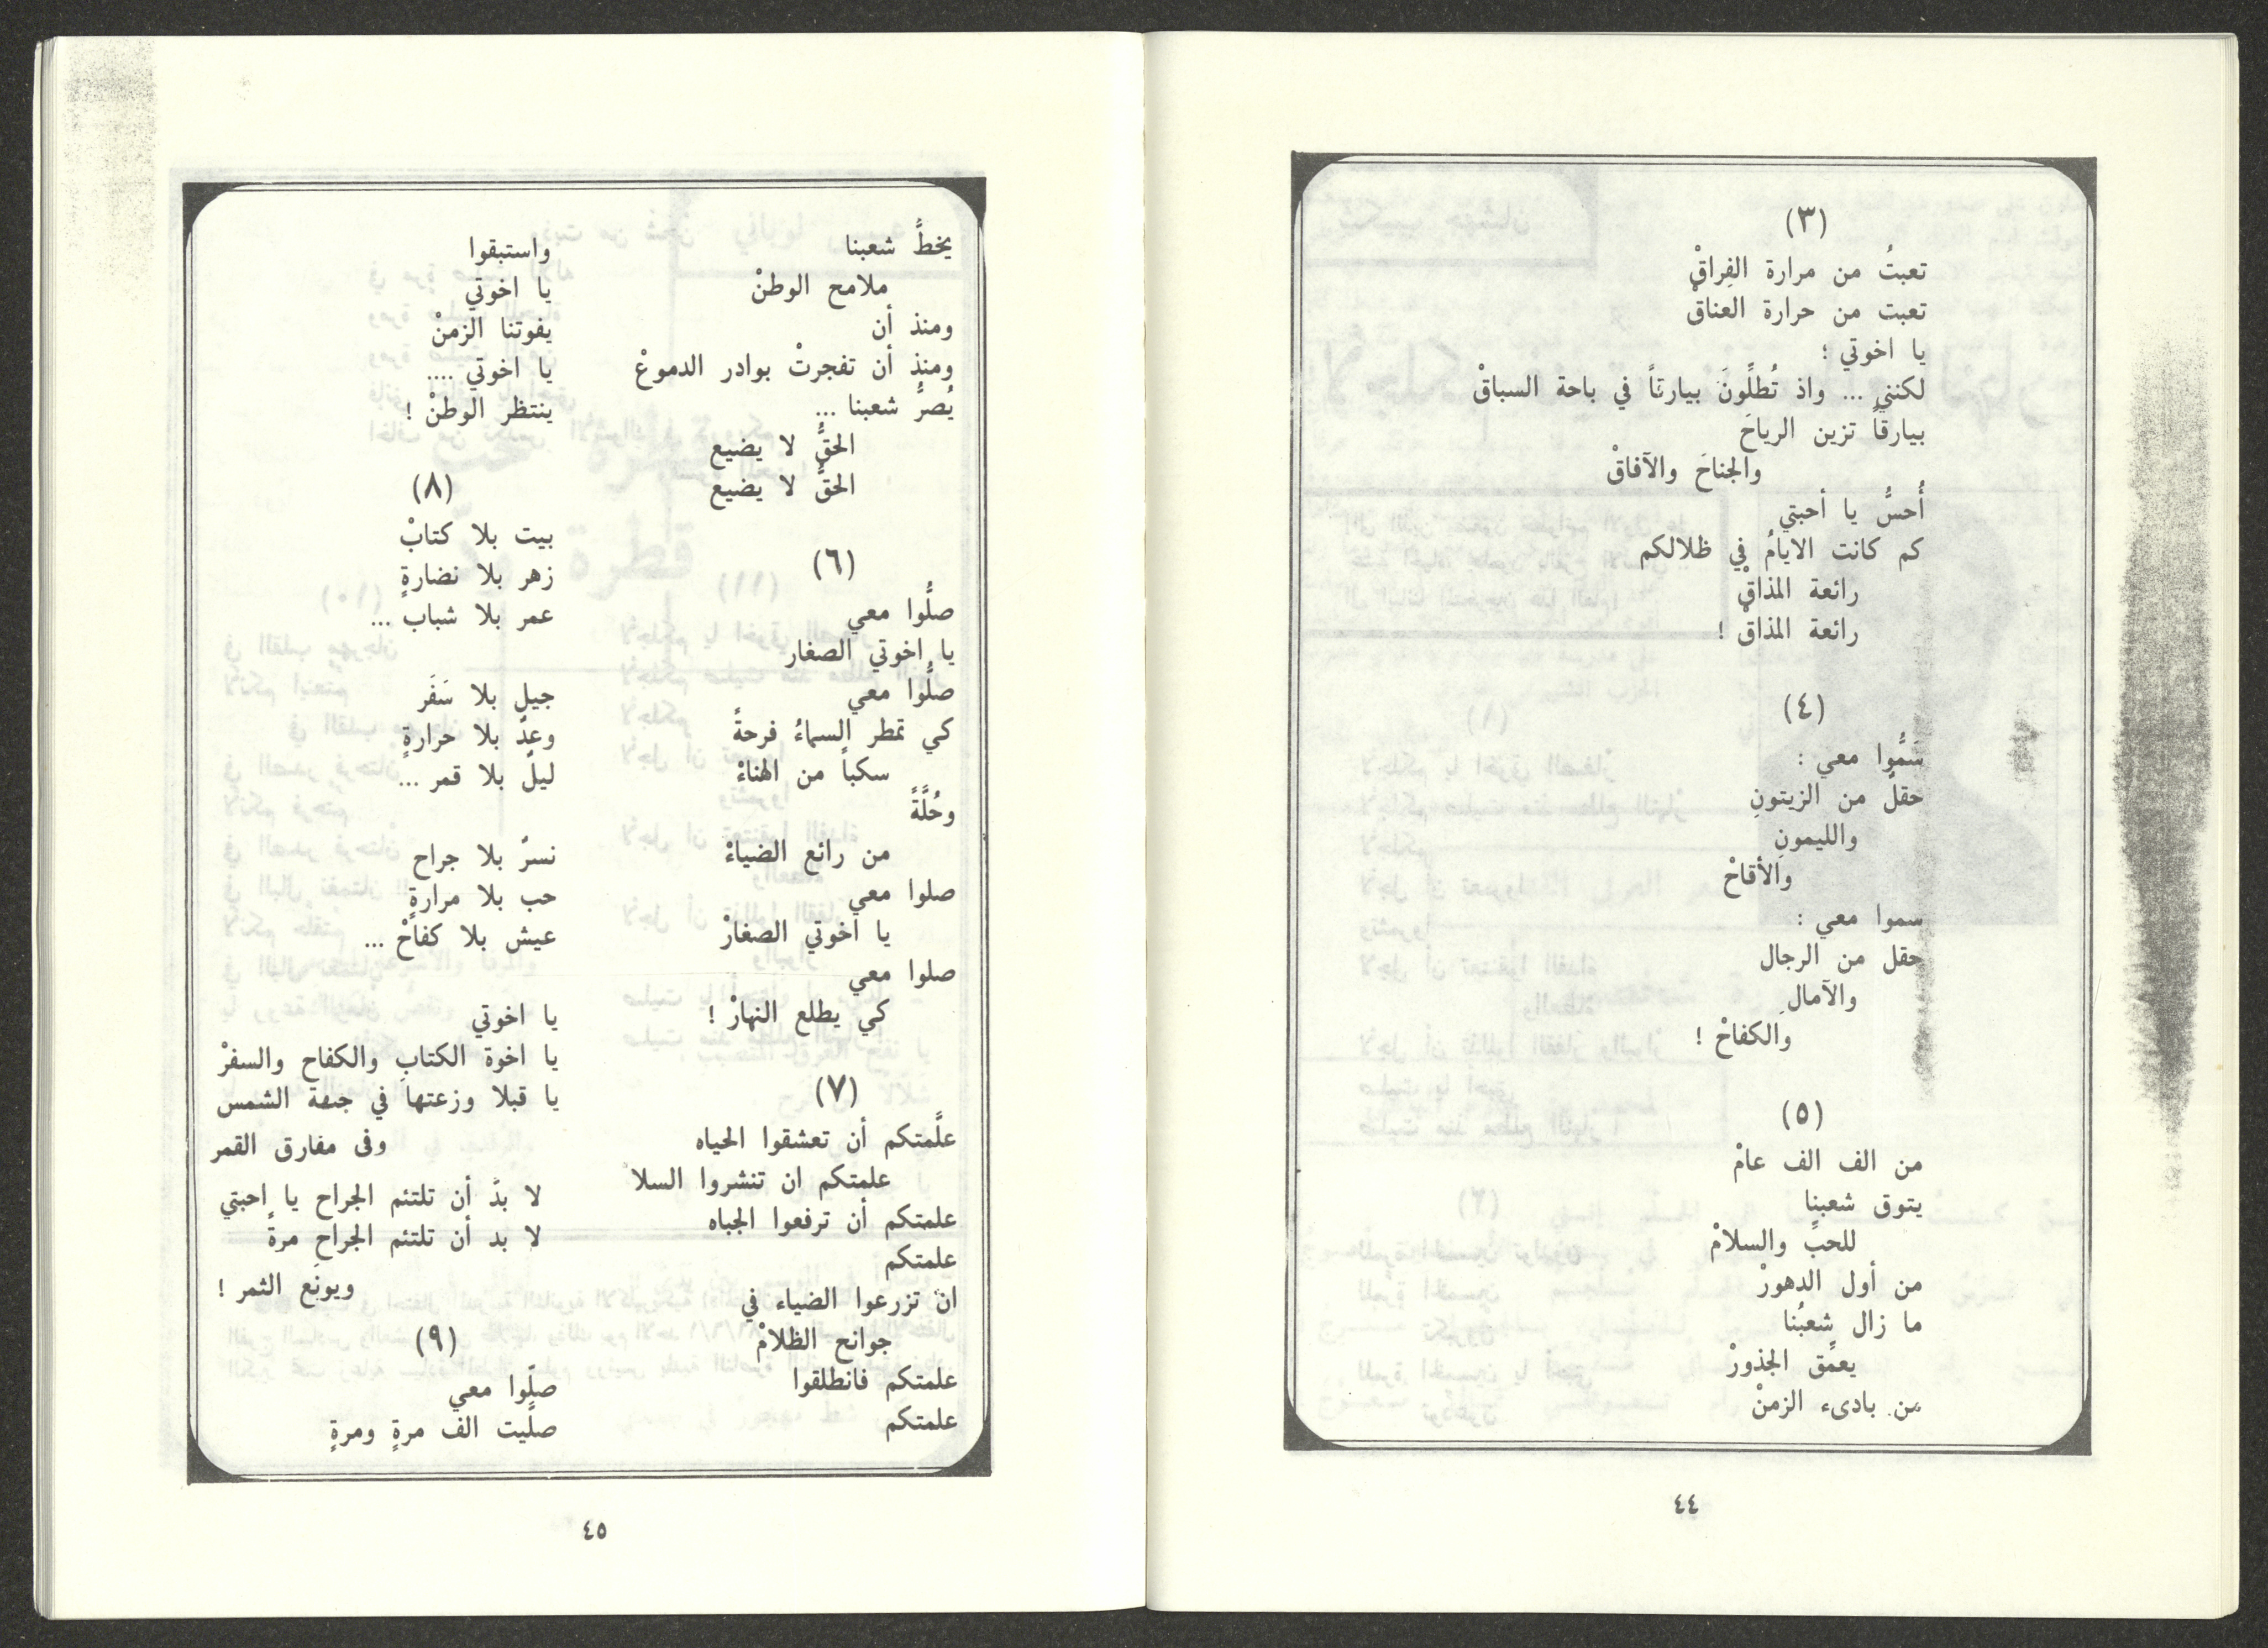 (٣)
تعبتُ من مرارة الفِراقْ
تعبت من حرارة العناقْ
يا اخوتي ؛
لكنني ... واذ تُطلِّونَ بيارقاً في باحة السباقْ
بيارقاً تزين الرياحَ
والجناحَ والآفاقْ
أُحسُّ يا أحبتي
كم كانت الايامُ في ظلالكم
رائعة المذاقْ
رائعة المذاقْ !
(٤)
سَمُّوا معي :
حقلٌ من الزيتونِ
والليمونِ
والأقاحْ
سموا معي :
حقل من الرجال
والآمالِ
والكفاحْ !
(٥)
من الف الف عامْ
يتوق شعبنا
للحبِّ والسلامْ
من أول الدهورْ
ما زال شعبُنا
يعمِّق الجذورْ
من بادىء الزمنْ
٤٤
يخطُّ شعبنا
ملامح الوطنْ
ومنذ أن
ومنذ أن تفجرتْ بوادر الدموعْ
يُصرُّ شعبنا ...
الحقُّ لا يضيع
الحقُّ لا يضيع
(٦)
صلُّوا معي
يا اخوتي الصغار
صلُّوا معي
كي تمطر السماءُ فرحةً
سكباً من الهناءْ
وحُلَّةً
من رائع الضياءْ
صلوا معي
يا اخوتي الصغارْ
صلوا معي
كي يطلع النهارْ !
(٧)
علَّمتكم أن تعشقوا الحياه
علمتكم ان تنشروا السلا
علمتكم أن ترفعوا الجباه
علمتكم
ان تزرعوا الضياء في
جوانح الظلامْ
علمتكم فانطلقوا
علمتكم
واستبقوا
يا اخوتي
يفوتنا الزمنْ
يا اخوتي ....
ينتظر الوطنْ !
(٨)
بيت بلا كتابْ
زهر بلا نضارةٍ
عمر بلا شباب ...
جيل بلا سَفَر
وعدٌ بلا حرارةٍ
ليلٌ بلا قمر ...
نسرٌ بلا جراح
حب بلا مرارةٍ
عيش بلا كفاحْ ...
يا اخوتي
يا اخوة الكتابِ والكفاح والسفرْ
يا قبلا وزعتها في جبهة الشمس
وفى مفارق القمر
لا بدَّ أن تلتئم الجراح يا احبتي
لا بد أن تلتئم الجراح مرةً
ويونَع الثمر !
(٩)
صلُّوا معي
صلَّيت الف مرةٍ ومرةٍ
٤٥